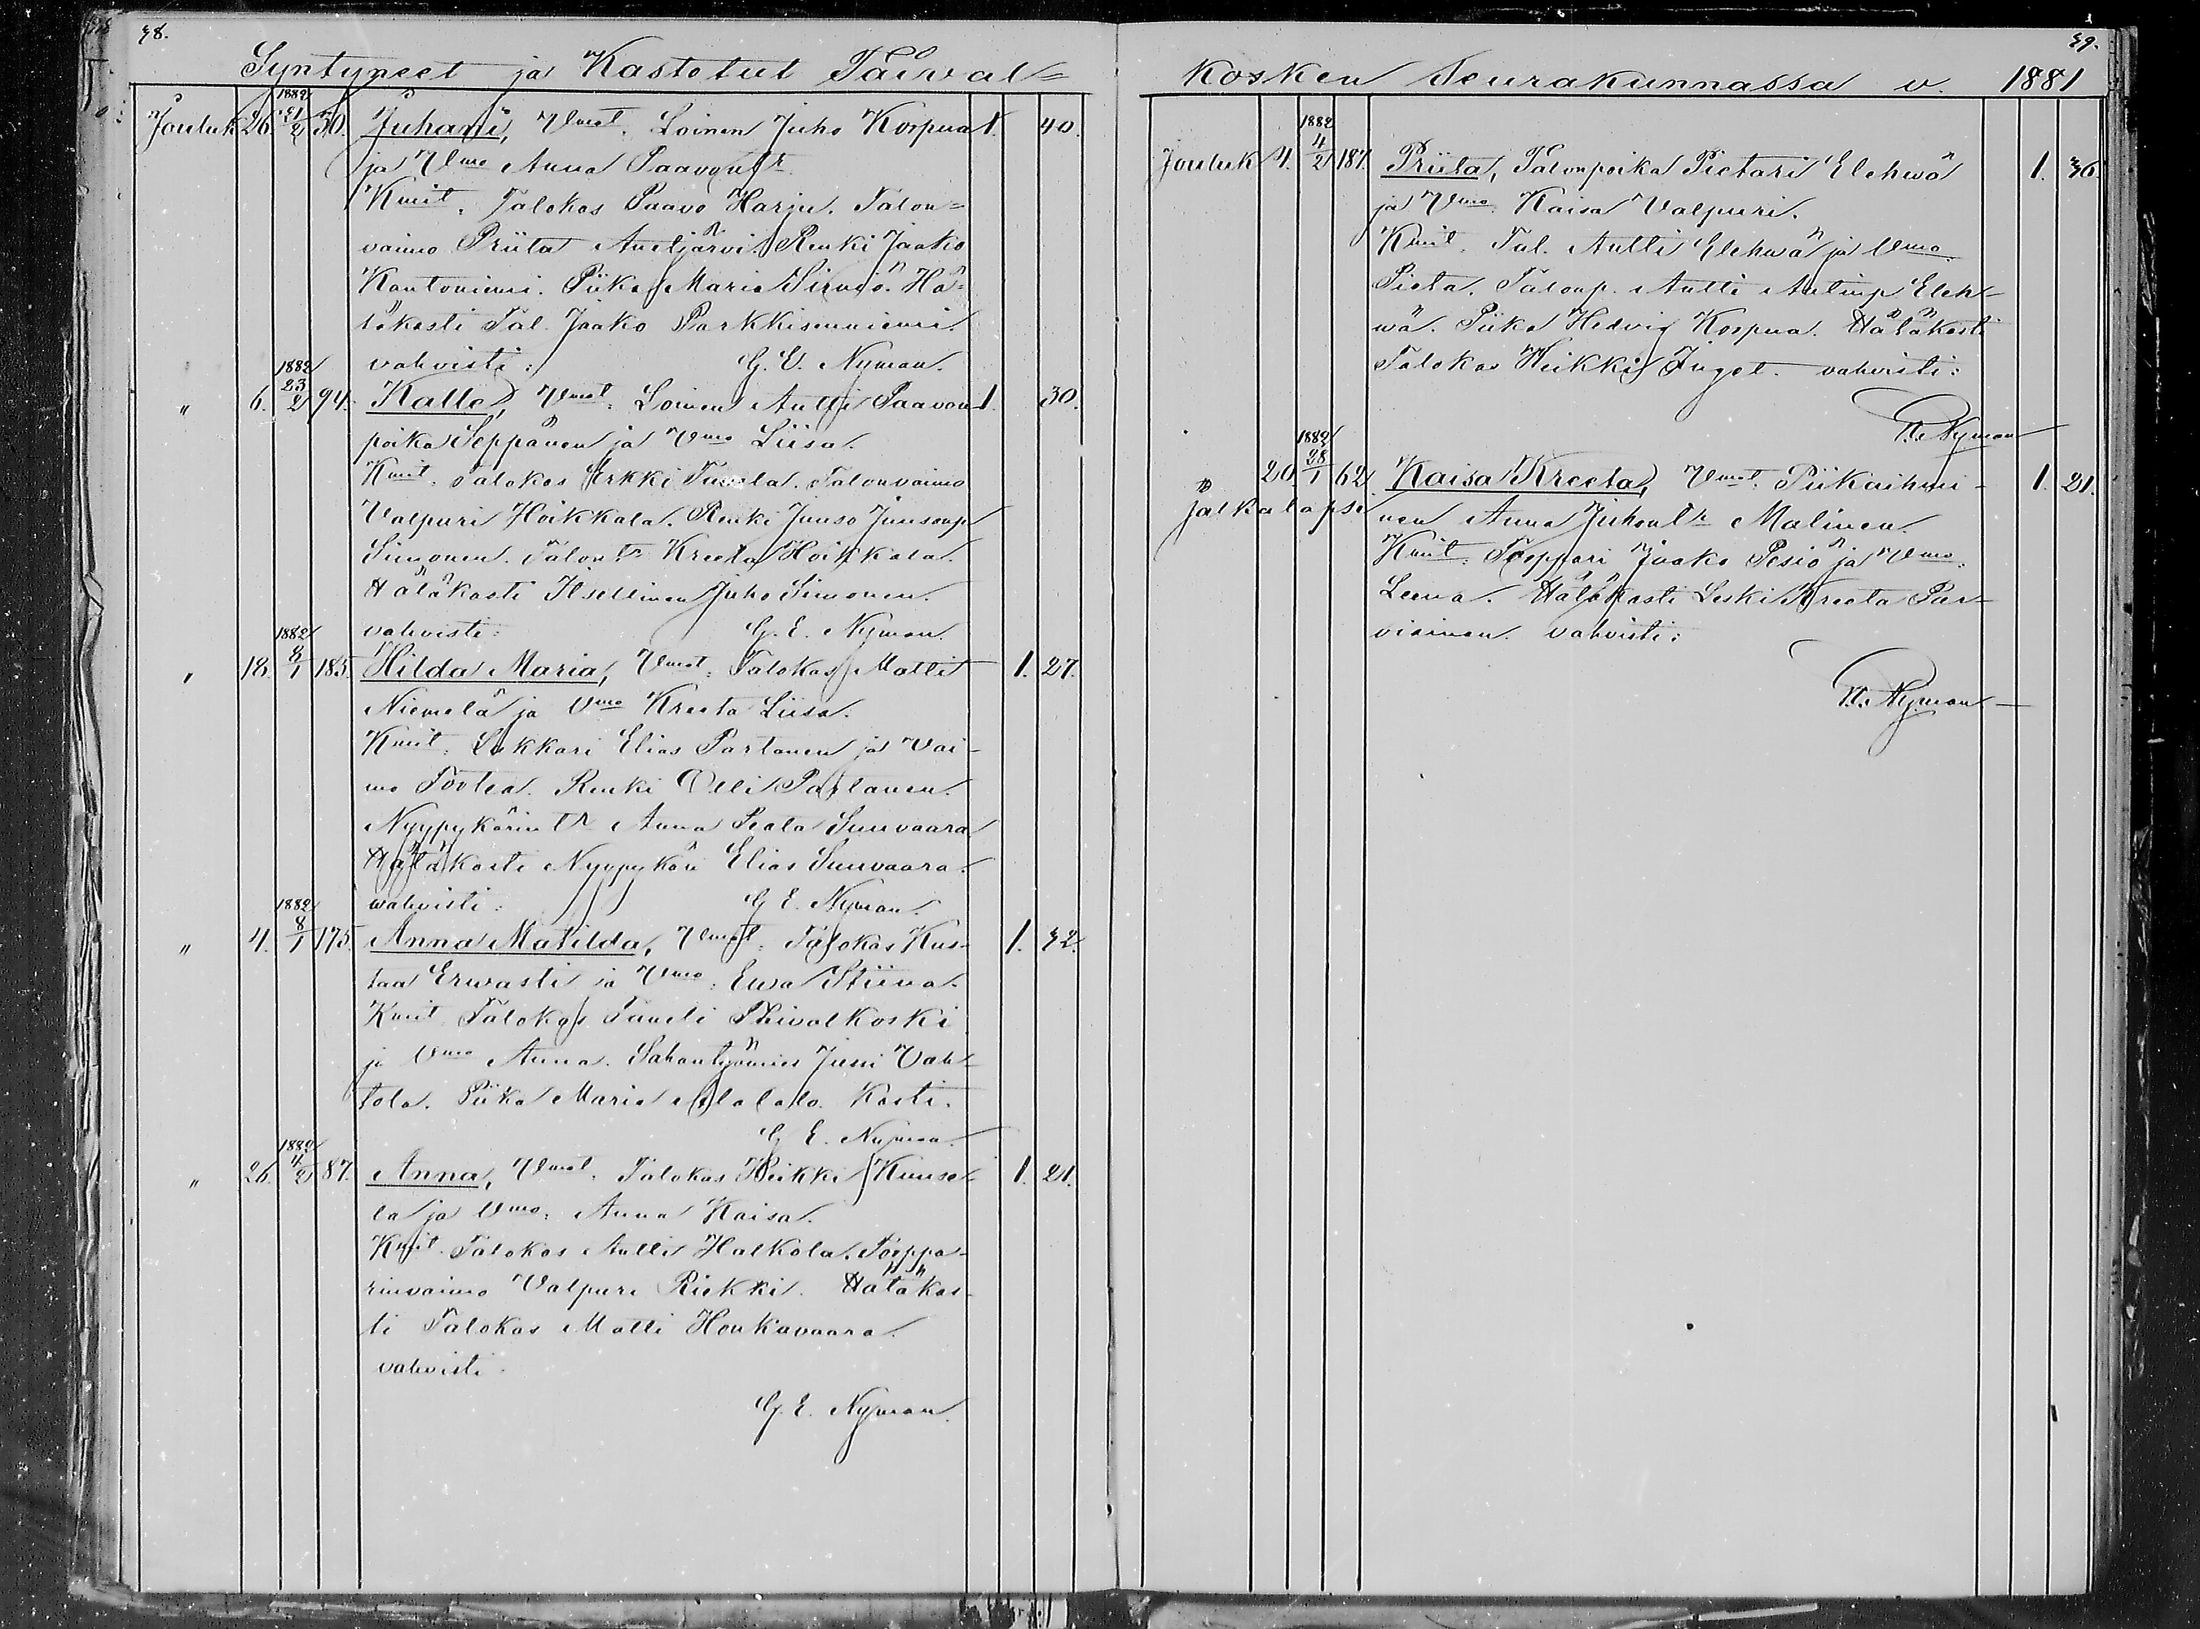 38.
Syntyneet ja Kastetut Taival=
Jouluk. 26. 1882 21/2 50. Juhani, Vmat. Loinen Juho Korpua 1. 40.
ja Vmo Anna Paavontr.
Kmit. Talokas Paavo Harju. Talon=
vaimo Priita Auetjärvi. Renki Jaako
Kantoniemi. Piika Maria Sirniö. Hä=
täkasti Tal. Jaako Parkkisenniemi.
vahvisti: G. E. Nyman.
" 6. 1882 23/2 94. Kalle, Vmat: Loinen Antti Paavon- 1. 30.
poika Seppänen ja Vmo Liisa.
Kmit. Talokas Erkki Tuvela. Talonvaimo
Valpuri Hoikkala. Renki Juuso Juusonp
Simonen. Talontr Kreeta Hoikkala.
Hätäkasti Itsellinen Juho Simonen.
vahvisti: G. E. Nyman.
" 18. 1882 8/1 185. Hilda Maria, Vmat: Talokas Matti 1. 27.
Niemelä ja Vmo Kreeta Liisa.
Kmit: Lukkari Elias Partanen ja Vai-
mo Tootea. Renki Olli Partanen.
Nyypykärin tr Anna Peata Suuvaara
Hätäkasti Nyypykäri Elias Suuvaara.
wahvisti: G. E. Nyman.
" 4. 1882 8/1 175. Anna Matilda, Vmat: Talokas Kus- 1. 32.
taa Erwasti ja Vmo: Ewa Stiina.
Kmit Talokas Taneli Thivalkoski
ja Vmo Anna. Sahantyömies Jussi Vah-
tola. Piika Maria Alatalo. Kasti.
G. E. Nyman.
" 26. 1882 4/2 87. Anna, Vmat. Talokas Heikki Kuuse- 1. 21.
la ja Vmo: Anna Kaisa.
Kmit. Talokas Antti Halkola. Torppa-
rinvaimo Valpuri Riekki. Hätäkas-
ti Talokas Matti Honkavaara.
vahvisti
G. E. Nyman.
39.
kosken Seurakunnassa v. 1881
Jouluk 4. 1882 4/2 187. Priita, Talonpoika Pietari Elehwä 1. 36.
ja Vmo: Kaisa Valpuri.
Kmit. Tal. Antti Elehwä ja Vmo.
Pieta. Talonp. Antti Antinp Eleh-
wä. Piika Hedvig Korpua. Hätäkasti
Talokas Heikki Ingol. vahvisti:
G. E. Nyman
" 20 1882 28/1 62. Kaisa Kreeta, Vmat: Piikaihmi- 1. 21.
Jalkalapsi nen Anna Juhontr Malinen.
Kmit: Torppari Jaako Pesiö ja Vmo.
Leena. Hätäkasti Leski Kreeta Par-
viainen vahvisti:
G. E. Nyman